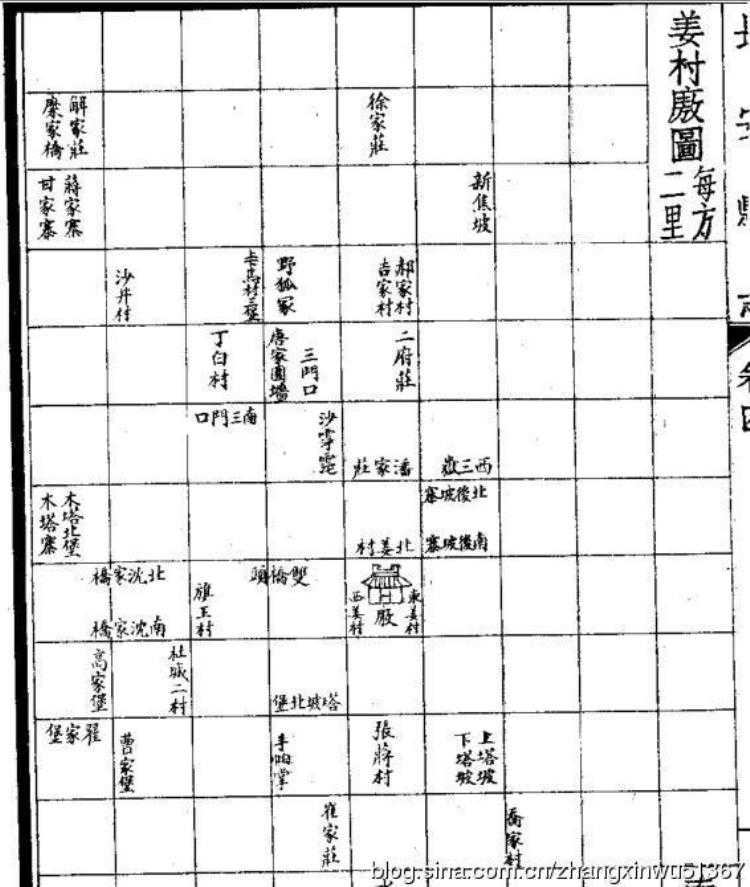 姜村廒圖
每方二里
徐家莊
解家莊
糜家橋
新焦坡
蔣家寨
甘家寨
郝家村
吉家村
野狐冢
沙井村
二府莊
三門口
唐家圍墻
丁白村
西三爻
潘家莊
沙滹沱
南三門口
北後坡寨
南後坡寨
北姜村
木塔北堡
木塔寨
東姜村
廒
西姜村
雙橋頭
旗王村
北沈家橋
南沈家橋
塔坡北堡
杜城二村
高家堡
上塔坡
下塔坡
張蔣村
手帕掌
曹家堡
翟家堡
喬家村
崔家莊
blog.sina.com.cn/zhangxinwu51367